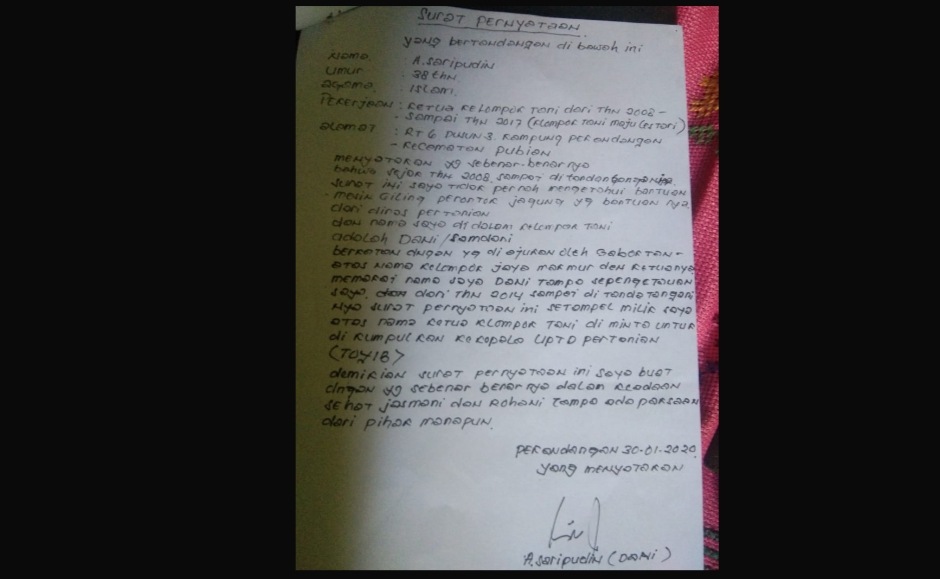 SURAT PERNYATAAN
yang bertandangan di bawah ini
Nama : A.saripudin
Umur : 38 thn.
agama : Islam.
PEKERJAAN : KETUA KELOMPOK Tani dari THN 2008 -
- Sampai THN 2017 (Klompok Tani maju lestari)
alamat : RT 6 DUSUN 3. Kampung PEKANDANGAN
- KECAMATAN PUBIAN
MENYATAKAN yg sebenar-benarnya
bahwa sejak THN 2008 sampai di tandangannya
surat ini saya tidak pernah mengetahui bantuan
- mesin Giling perontok jagung yg bantuan nya
dari dinas pertanian
dan nama saya di dalam kelompok Tani
adalah Dani/Samdani
berkatan dngan yg di ajukan oleh Gabortan-
atas nama kelompok jaya makmur den ketuanya
memakai nama saya Dani tampa sepengetauan
saya. dan dari THN 2014 sampai di tanda tangani
Nya surat pernyataan ini setampel milik saya
atas nama ketua klompok Tani di minta untuk
di kumpulkan ke kepala UPTD pertanian
(TOYIB)
demikian surat pernyataan ini saya buat
dngan yg sebenar benar nya dalam keadaan
sehat jasmani dan Rohani Tampa ada paksaan
dari pihak manapun.
PEKANDANGAN 30-01-2020
yang MENYATAKAN
A.saripudin (DANI)